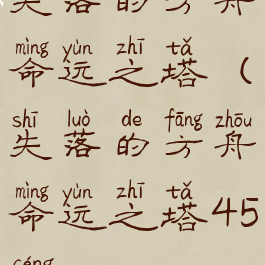 失落的方舟
mìng yùn zhī tǎ
命运之塔(
shī luò de fāng zhōu
失落的方舟
mìng yùn zhī tǎ
命运之塔45
céng